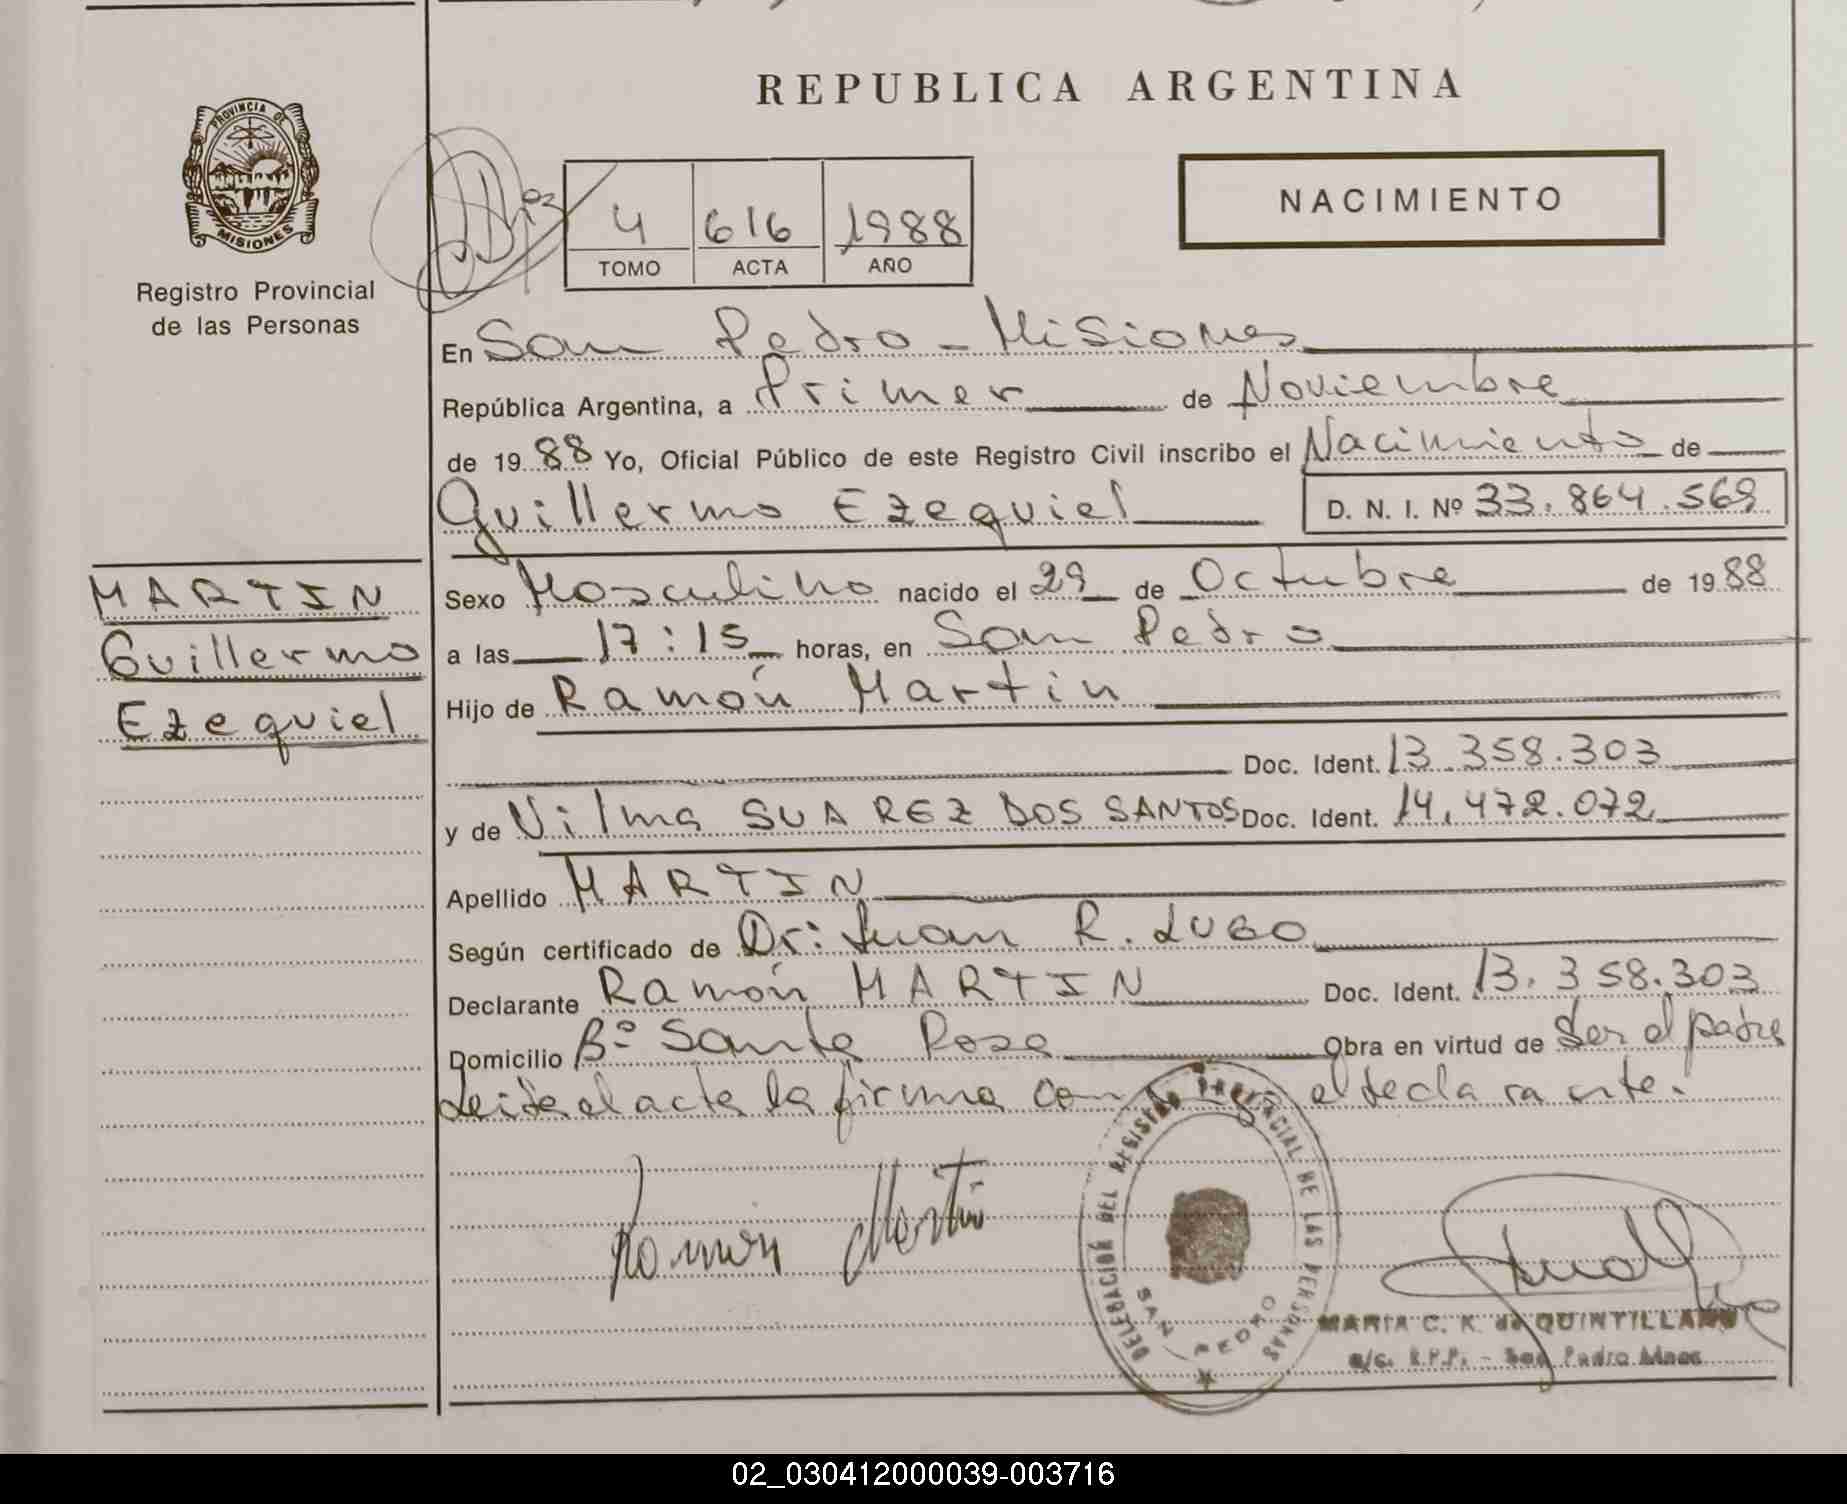 REPUBLICA ARGENTINA
PROVINCIA DE
MISIONES
Registro Provincial
de las Personas
4 616 1988
TOMO ACTA AÑO
NACIMIENTO
En San Pedro - Misiones
República Argentina, a Primer de Noviembre
de 1988 Yo, Oficial Público de este Registro Civil inscribo el Nacimiento de
Guillermo Ezequiel D. N. I. Nº 33.864.569
MARTIN
Guillermo
Ezequiel
Sexo Masculino nacido el 29 de Octubre de 1988
a las 17:15 horas, en San Pedro
Hijo de Ramón Martin
Doc. Ident. 13.358.303
y de Vilma SUAREZ DOS SANTOS Doc. Ident. 14.472.072
Apellido MARTIN
Según certificado de Dr: Juan R. LUGO
Declarante Ramón MARTIN Doc. Ident. 13.358.303
Domicilio Bº Santa Rosa Obra en virtud de Ser el padre
Leida el acta la firma con el declarante.
Ramón Martin
DELEGACIÓN DEL REGISTRO PROVINCIAL DE LAS PERSONAS
SAN PEDRO
MARIA C. K. de QUINTILLAN
a/c. R.P.P. - San Pedro Mnes
02_030412000039-003716